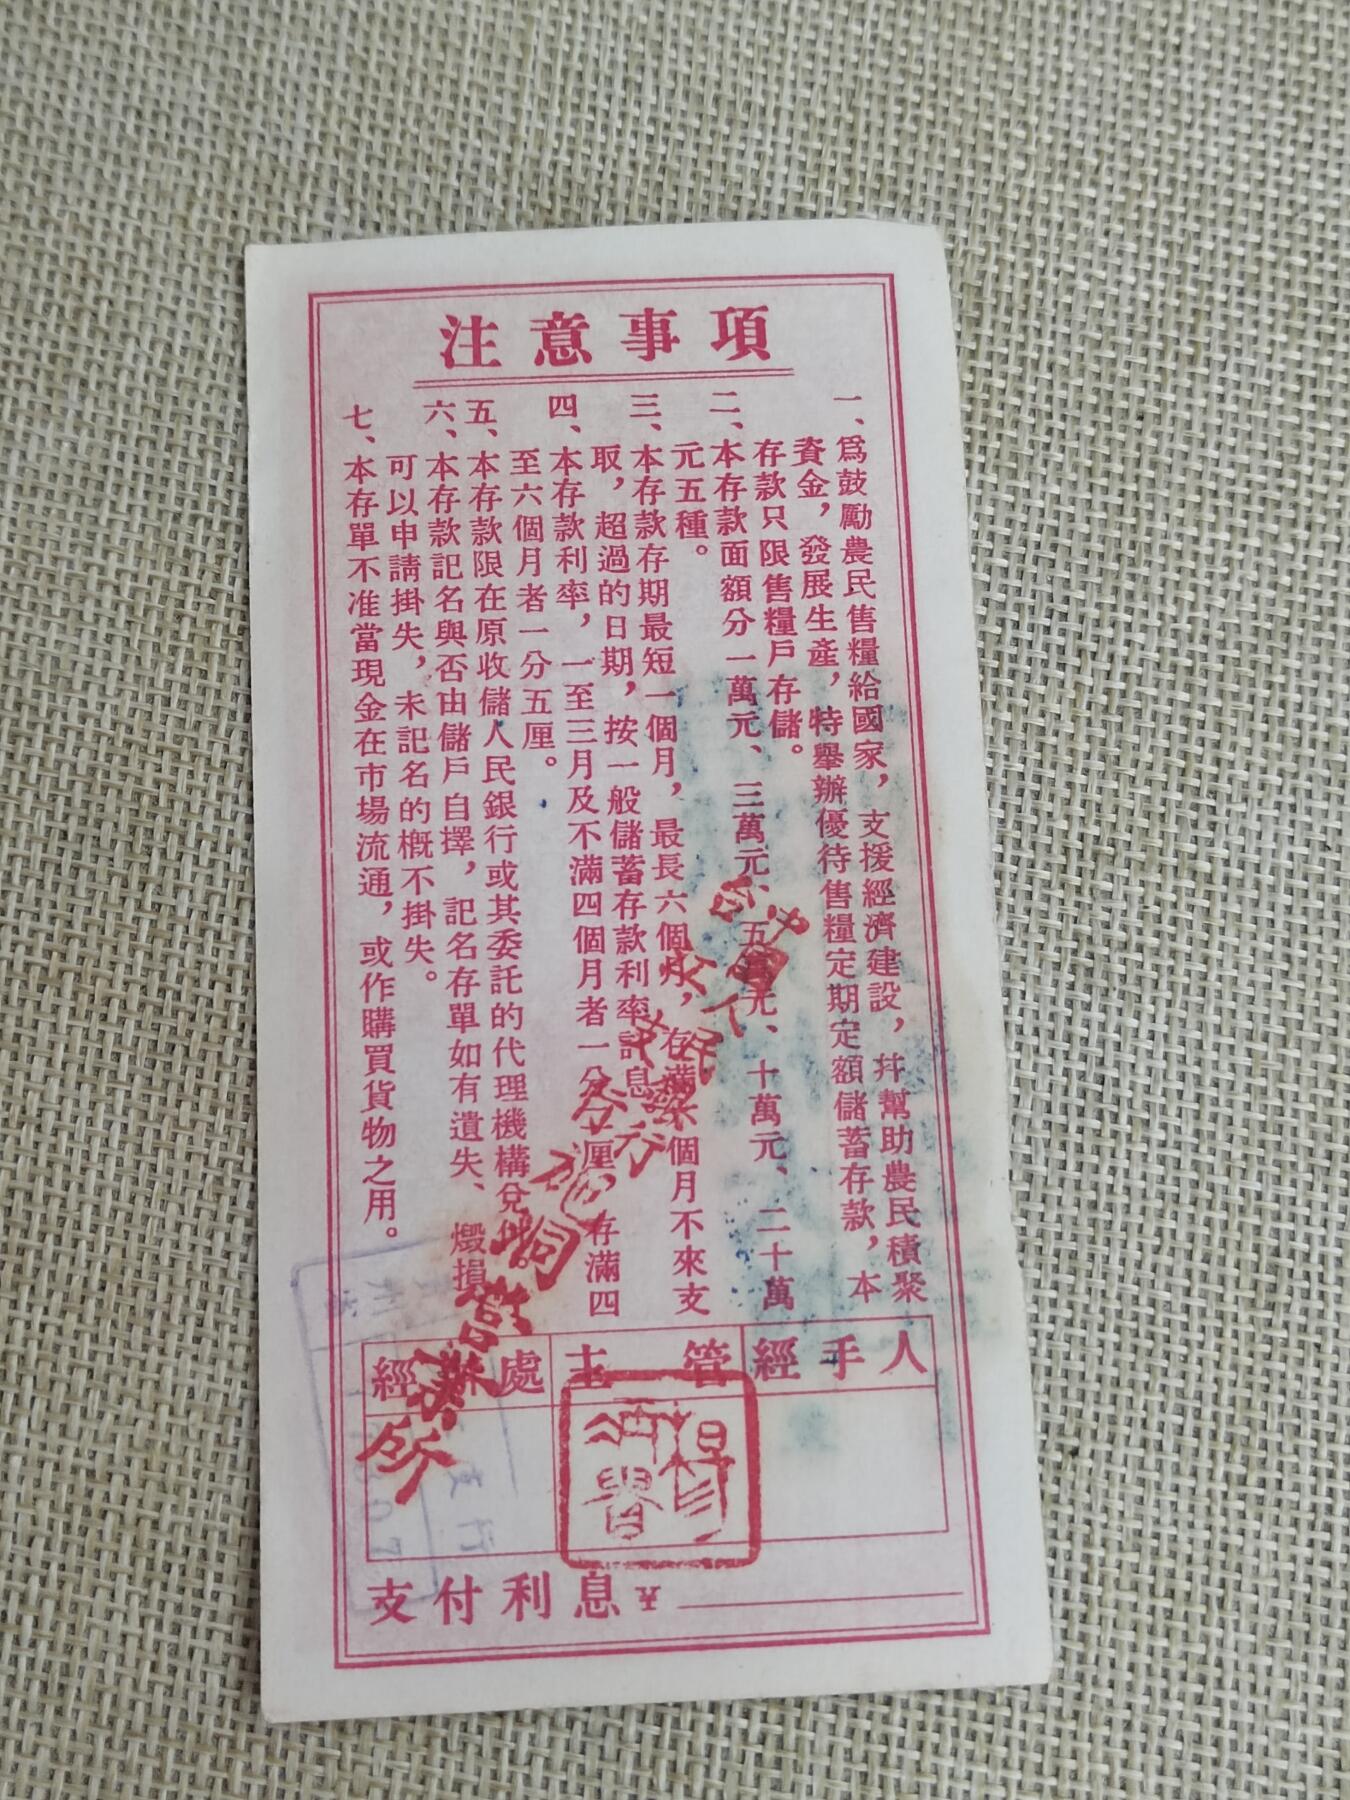 注意事項
一、為鼓勵農民售糧給國家，支援經濟建設，幷幫助農民積聚
資金，發展生產，特舉辦優待售糧定期定額儲蓄存款，本
存款只限售糧戶存儲。
二、本存款面額分一萬元、三萬元、五萬元、十萬元、二十萬
元五種。
三、本存款存期最短一個月，最長六個月，存滿六個月不來支
取，超過的日期，按一般儲蓄存款利率計息。
四、本存款利率，一至三月及不滿四個月者一分 厘，存滿四
至六個月者一分五厘。
五、本存款限在原收儲人民銀行或其委託的代理機構兌付。
六、本存款記名與否由儲戶自擇，記名存單如有遺失、燬損
可以申請掛失，未記名的概不掛失。
七、本存單不准當現金在市場流通，或作購買貨物之用。
經辦處 主管 經手人
支付利息¥
中國人民銀行
支行
營業所
楊